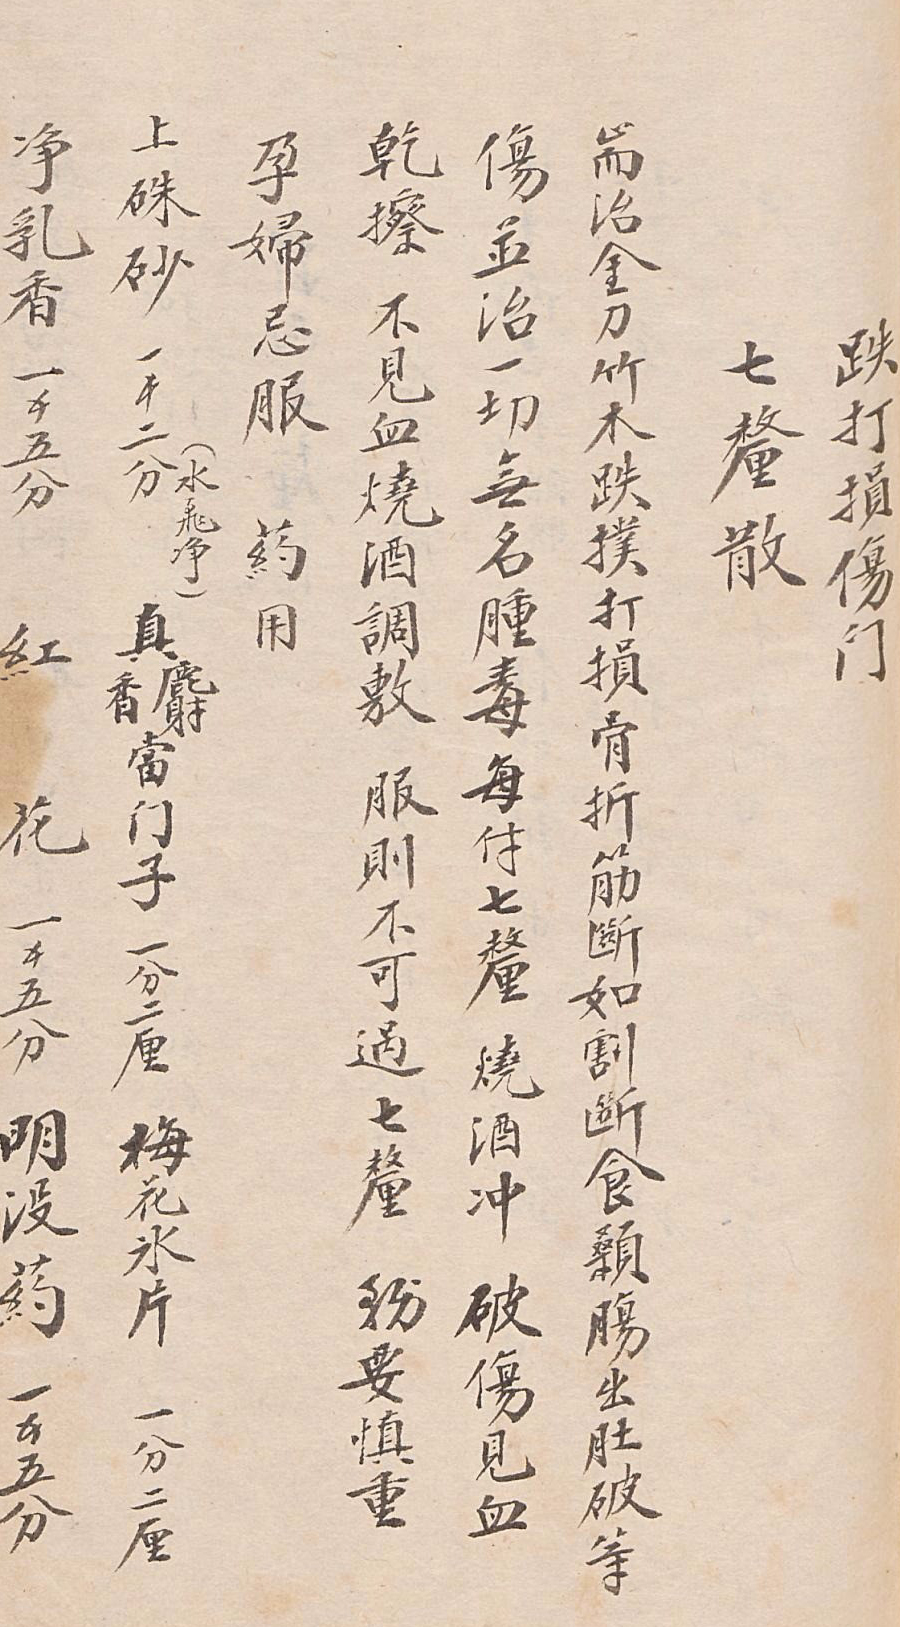 跌打損傷门
七釐散
耑治金刀竹木跌撲打損骨折筋斷如割斷食顙腸出肚破等
傷並治一切無名腫毒每付七釐 燒酒冲 破傷見血
乾擦 不見血燒酒調敷 服則不可過七釐 務要慎重
孕婦忌服 药用
上硃砂 一牛二分(水飛净) 真麝香當门子 一分二厘 梅花氷片 一分二厘
净乳香 一牛五分 紅花 一牛五分 明没药 一牛五分